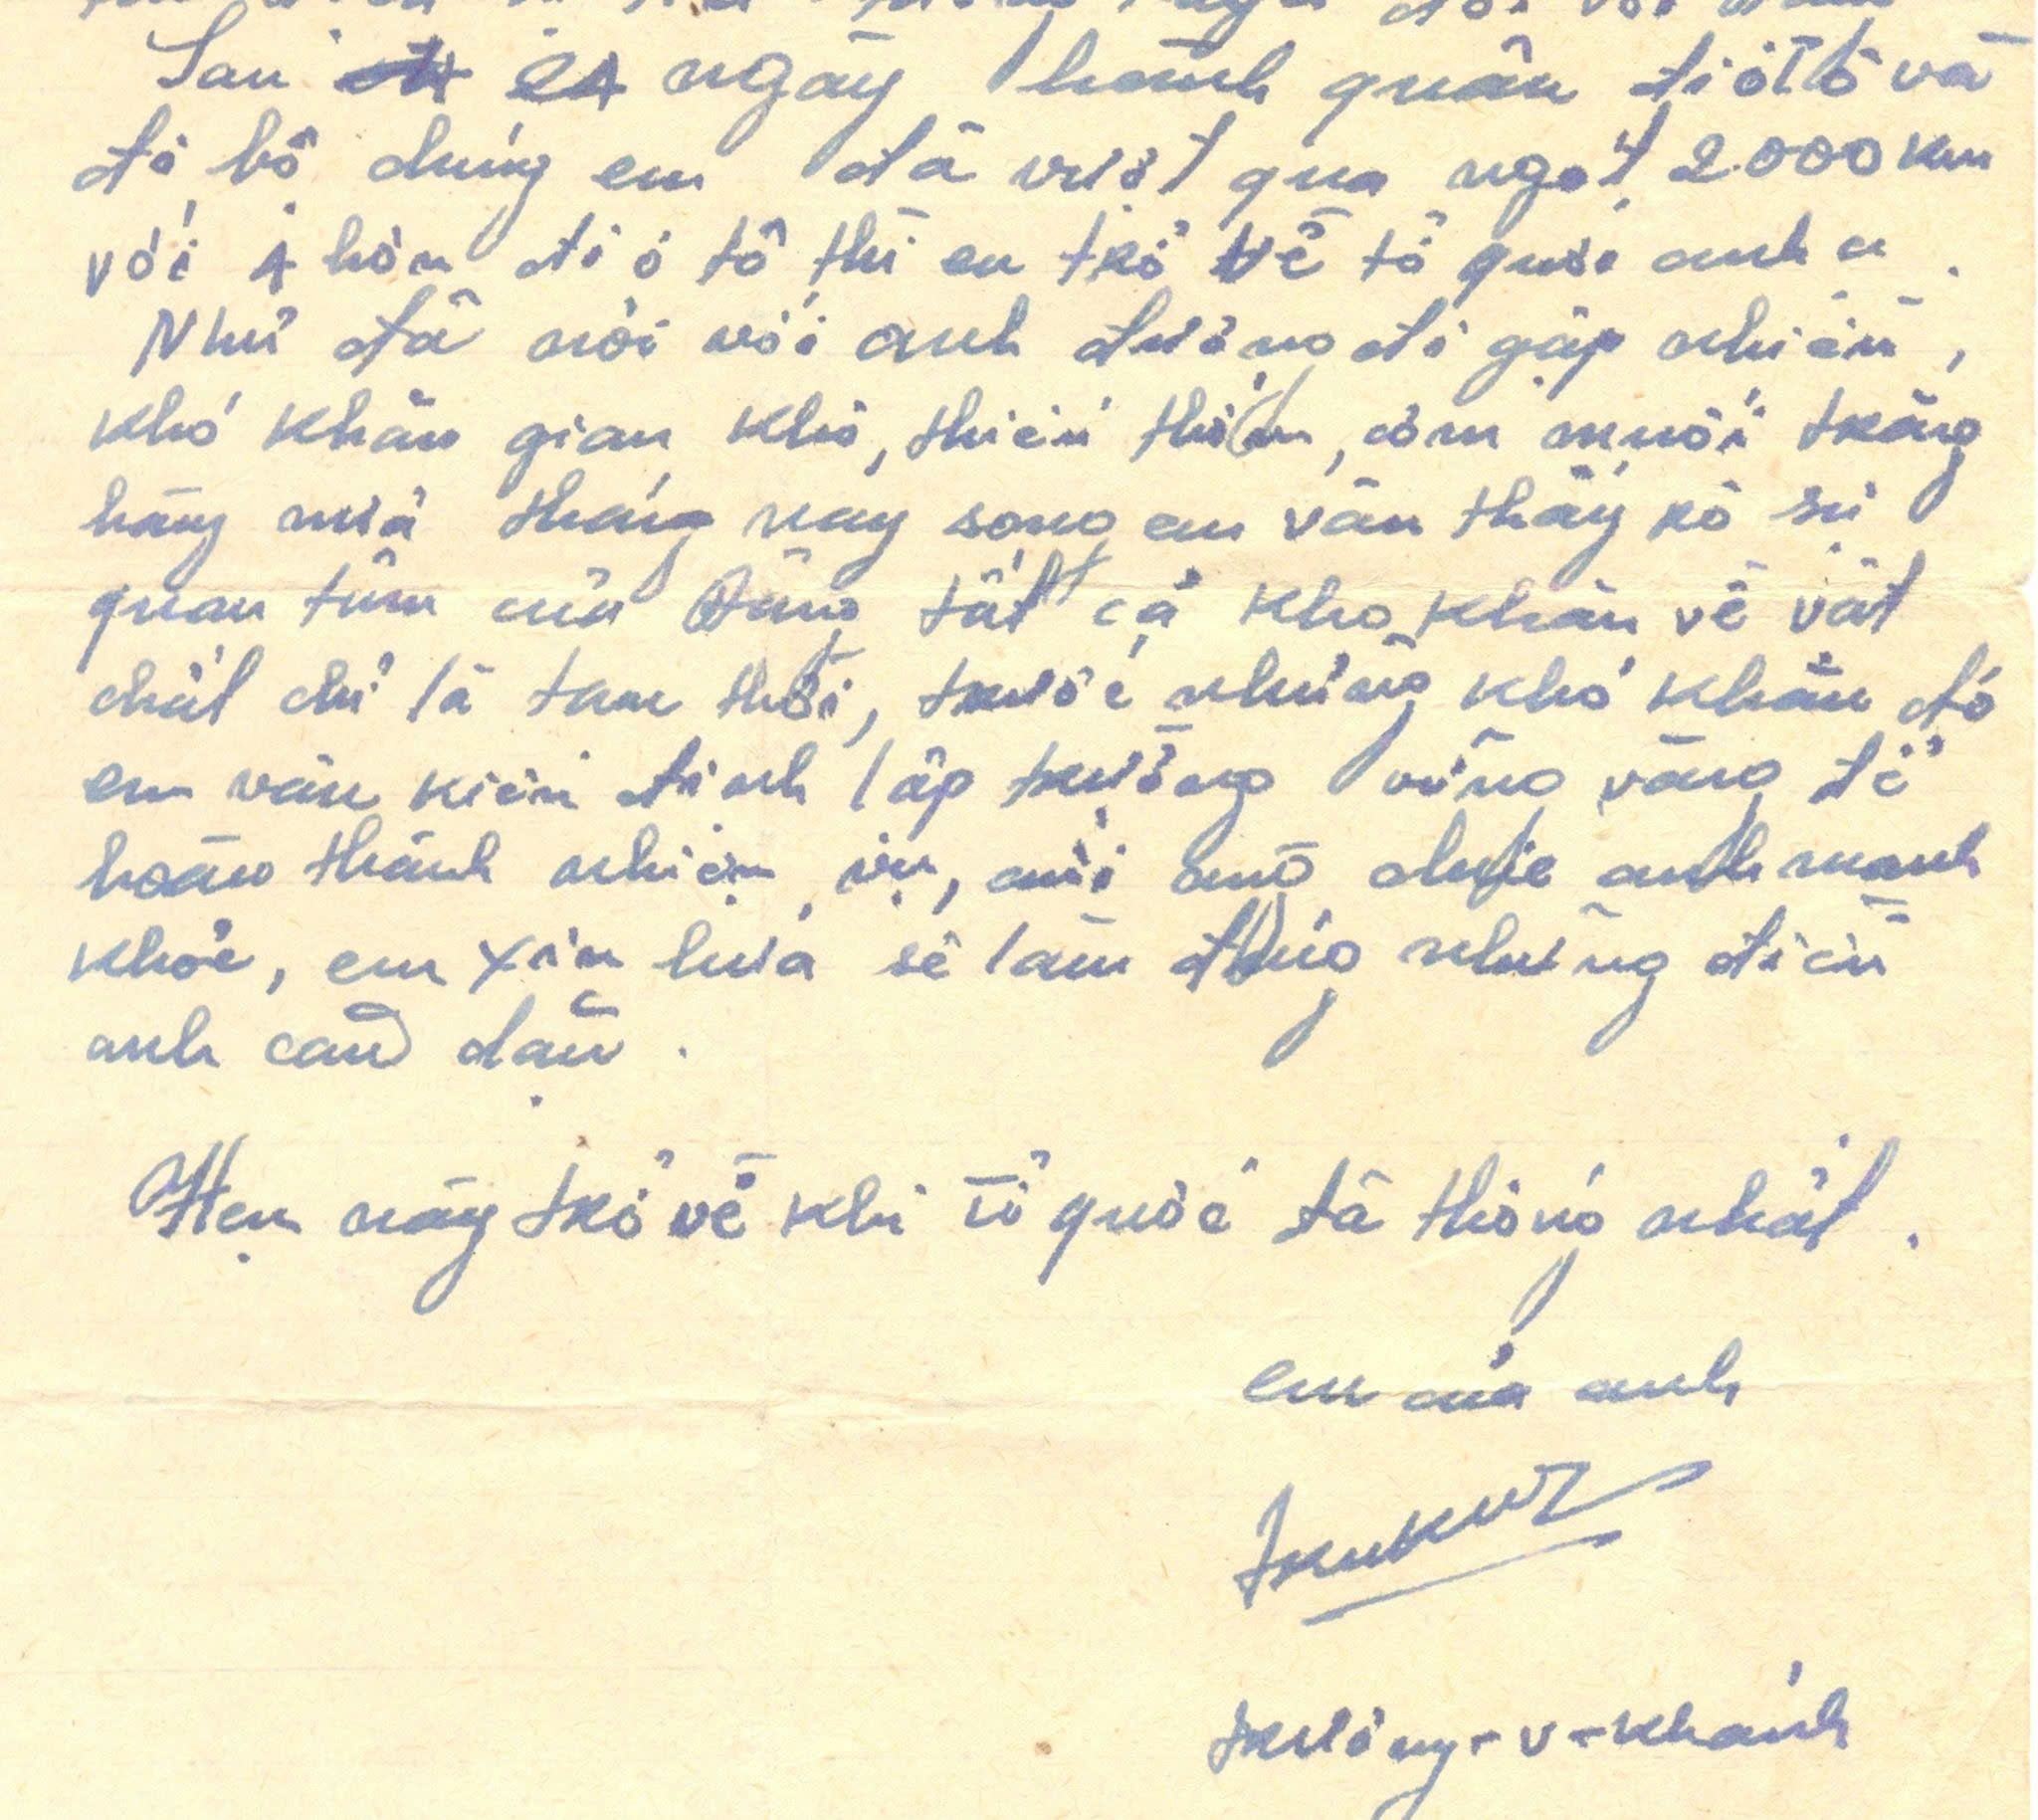 Sau ngày hành quân đi ôtô và
đi bộ chúng em đã vượt qua ngót 2000 km
với 4 hôm đi ô tô thì em trở về tổ quốc anh ạ.
Như đã nói với anh đường đi gặp nhiều,
khó khăn gian khổ, thiếu thốn, cơm muối trắng
hàng nửa tháng nay song em vẫn thấy rõ sự
quan tâm của Đảng tất cả khó khăn về vật
chất chỉ là tạm thời, trước những khó khăn đó
em vẫn kiên định lập trường vững vàng để
hoàn thành nhiệm vụ, cuối cùng chúc anh mạnh
khỏe, em xin hứa sẽ làm đúng những điều
anh căn dặn.
Hẹn ngày trở về khi Tổ quốc đã thống nhất.
em của anh
Trương-v-Khánh